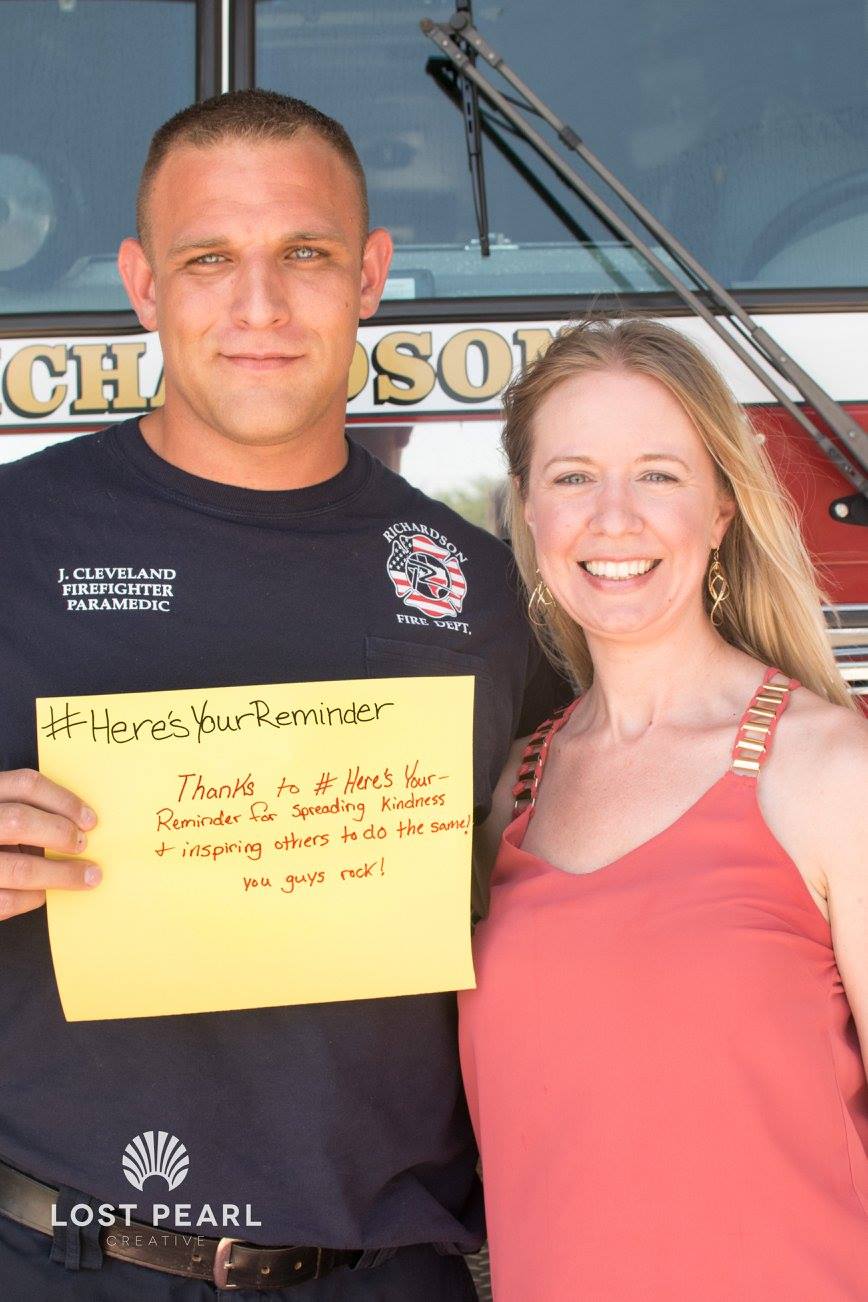 ICHA DSON
J. CLEVELAND
FIREFIGHTER
PARAMEDIC
RICHARDSON
R
FIRE DEPT.
#Here'sYourReminder
Thanks to #Here's Your-
Reminder for spreading kindness
+ inspiring others to do the same!
you guys rock!
LOST PEARL
CREATIVE